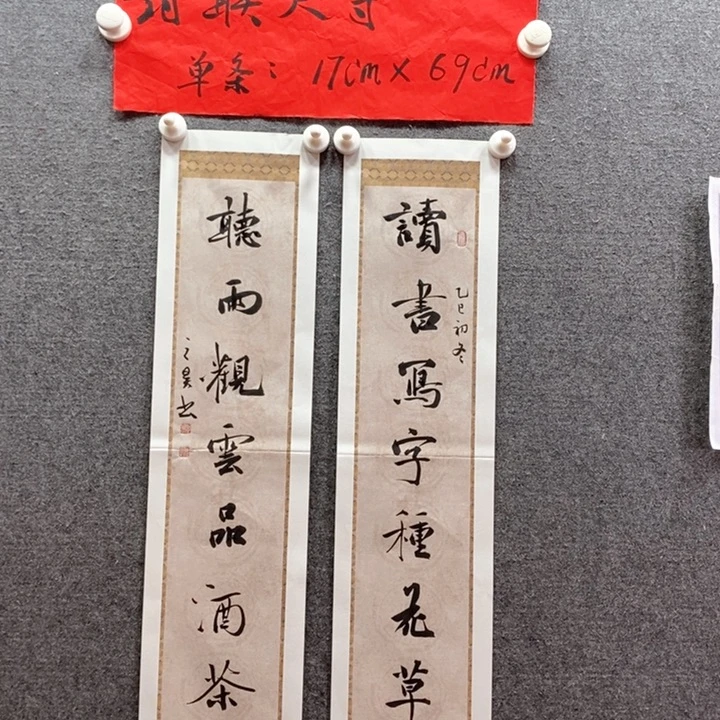 对联尺寸
单条：17cm×69cm
讀書寫字種花草
乙巳初冬
聽雨觀雲品酒茶
之昊书